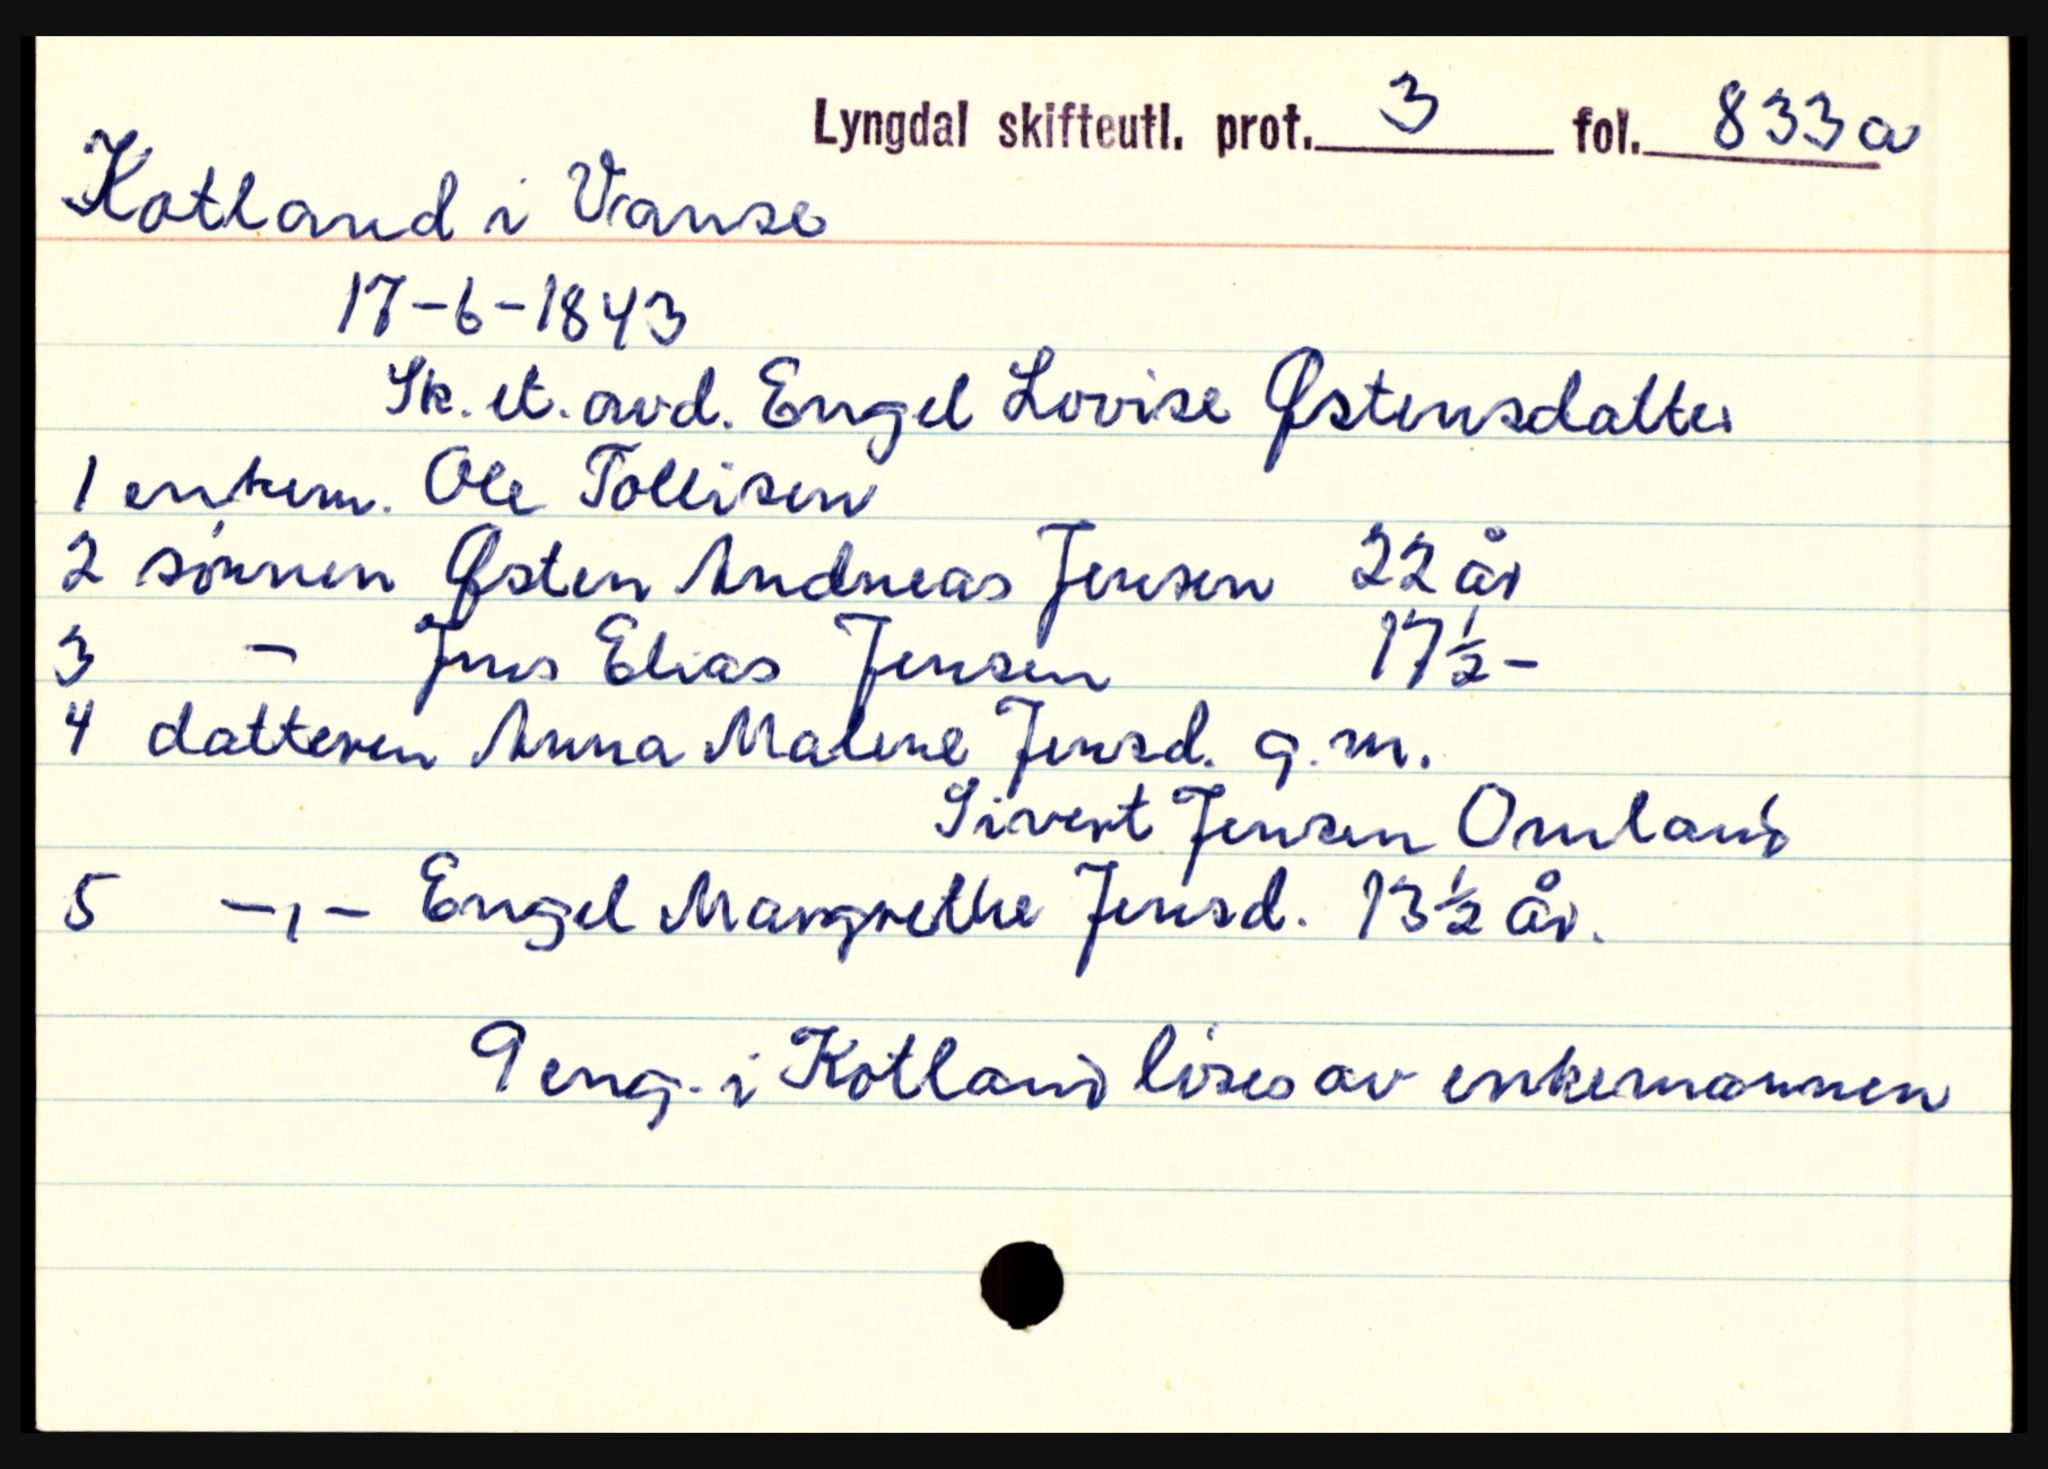 Lyngdal skifteutl. prot. 3 fol. 833a
Kotland i Vanse
17-6-1843
Sk. et. avd. Engel Lovise Østensdatter
1 enkem. Ole Tollisen
2 sønnen Østen Andreas Jensen 22 år
3 - Jens Elias Jensen 17½ -
4 datteren Anna Malene Jensd. g.m.
Sivert Jensen Omland
5 -,- Engel Margrethe Jensd. 13½ år.
9 eng. i Kotland löses av enkemannen